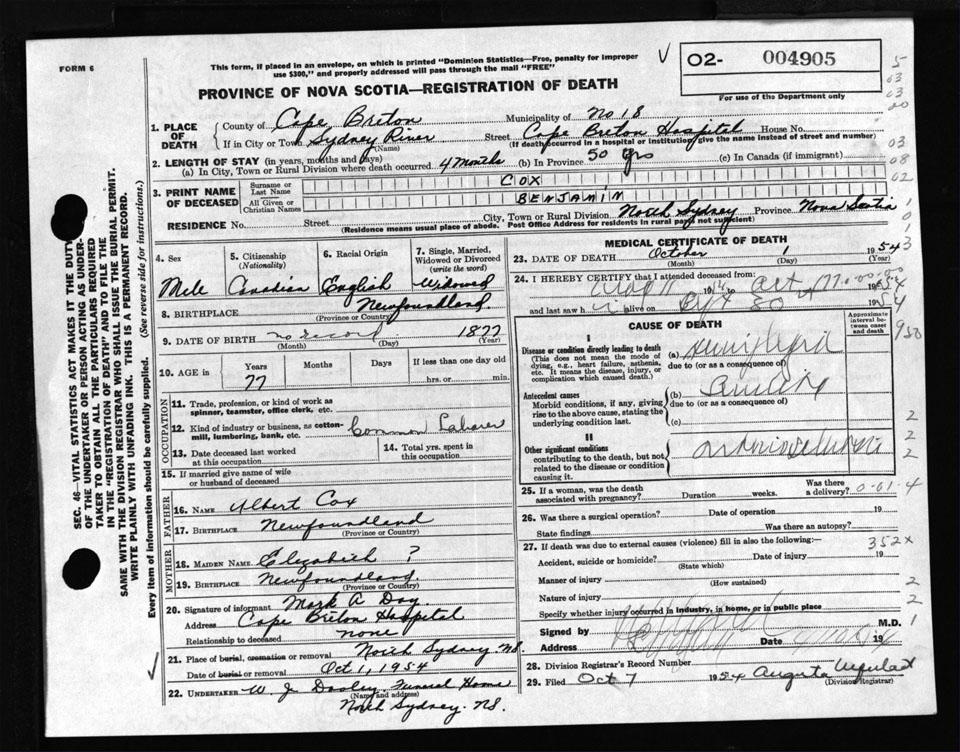 FORM 6
This form, if placed in an envelope, on which is printed "Dominion Statistics—Free, penalty for improper
use $300," and properly addressed will pass through the mail "FREE"
02- 004905
For use of the Department only
PROVINCE OF NOVA SCOTIA—REGISTRATION OF DEATH
1. PLACE OF DEATH
County of Cape Breton Municipality of No 18
If in City or Town Sydney River (Name) Street Cape Breton Hospital House No.
(If death occurred in a hospital or institution, give the name instead of street and number)
2. LENGTH OF STAY (in years, months and days)
(a) In City, Town or Rural Division where death occurred 4 Months (b) In Province 50 yrs (c) In Canada (if immigrant)
3. PRINT NAME OF DECEASED
Surname or Last Name COX
All Given or Christian Names BENJAMIN
RESIDENCE No. Street City, Town or Rural Division North Sydney Province Nova Scotia
(Residence means usual place of abode. Post Office Address for residents in rural parts not sufficient)
4. Sex
Male
5. Citizenship (Nationality)
Canadian
6. Racial Origin
English
7. Single, Married, Widowed or Divorced (write the word)
Widowed
8. BIRTHPLACE Newfoundland
(Province or Country)
9. DATE OF BIRTH no record 1877
(Month) (Day) (Year)
10. AGE in Years 77 Months Days If less than one day old
hrs. or min.
OCCUPATION
11. Trade, profession, or kind of work as
spinner, teamster, office clerk, etc.
12. Kind of industry or business, as cotton-
mill, lumbering, bank, etc. Common Laborer
13. Date deceased last worked
at this occupation
14. Total yrs. spent in
this occupation
15. If married give name of wife
or husband of deceased
FATHER
16. NAME Albert Cox
17. BIRTHPLACE Newfoundland
(Province or Country)
MOTHER
18. MAIDEN NAME Elizabeth ?
19. BIRTHPLACE Newfoundland
(Province or Country)
20. Signature of informant Mark A Day
Address Cape Breton Hospital
Relationship to deceased none
21. Place of burial, cremation or removal North Sydney NS.
Date of burial or removal Oct 1, 1954
22. UNDERTAKER W. J. Dooley Funeral Home
(Name and address)
North Sydney. NS.
MEDICAL CERTIFICATE OF DEATH
23. DATE OF DEATH October 1 1954
(Month) (Day) (Year)
24. I HEREBY CERTIFY that I attended deceased from:
and last saw h alive on 1954
CAUSE OF DEATH
Approximate interval between onset and death
I
Disease or condition directly leading to death
(This does not mean the mode of
dying, e.g., heart failure, asthenia,
etc. It means the disease, injury, or
complication which caused death.)
(a) Hemiplegia
due to (or as a consequence of)
Antecedent causes
Morbid conditions, if any, giving
rise to the above cause, stating the
underlying condition last.
(b) Senility
due to (or as a consequence of)
(c)
II
Other significant conditions
contributing to the death, but not
related to the disease or condition
causing it.
25. If a woman, was the death
associated with pregnancy? Duration weeks. Was there a delivery? 0-01-4
26. Was there a surgical operation? Date of operation 19
State findings Was there an autopsy?
27. If death was due to external causes (violence) fill in also the following: 352X
Accident, suicide or homicide? Date of injury 19
(State which)
Manner of injury (How sustained)
Nature of injury
Specify whether injury occurred in industry, in home, or in public place
Signed by M.D.
Address Date 19
28. Division Registrar's Record Number
29. Filed Oct 7 1954 Augusta
(Division Registrar)
SEC. 46—VITAL STATISTICS ACT MAKES IT THE DUTY
OF THE UNDERTAKER OR PERSON ACTING AS UNDER-
TAKER TO OBTAIN ALL THE PARTICULARS REQUIRED
IN THE "REGISTRATION OF DEATH" AND TO FILE THE
SAME WITH THE DIVISION REGISTRAR WHO SHALL ISSUE THE BURIAL PERMIT.
WRITE PLAINLY WITH UNFADING INK. THIS IS A PERMANENT RECORD.
Every item of information should be carefully supplied. (See reverse side for instructions.)